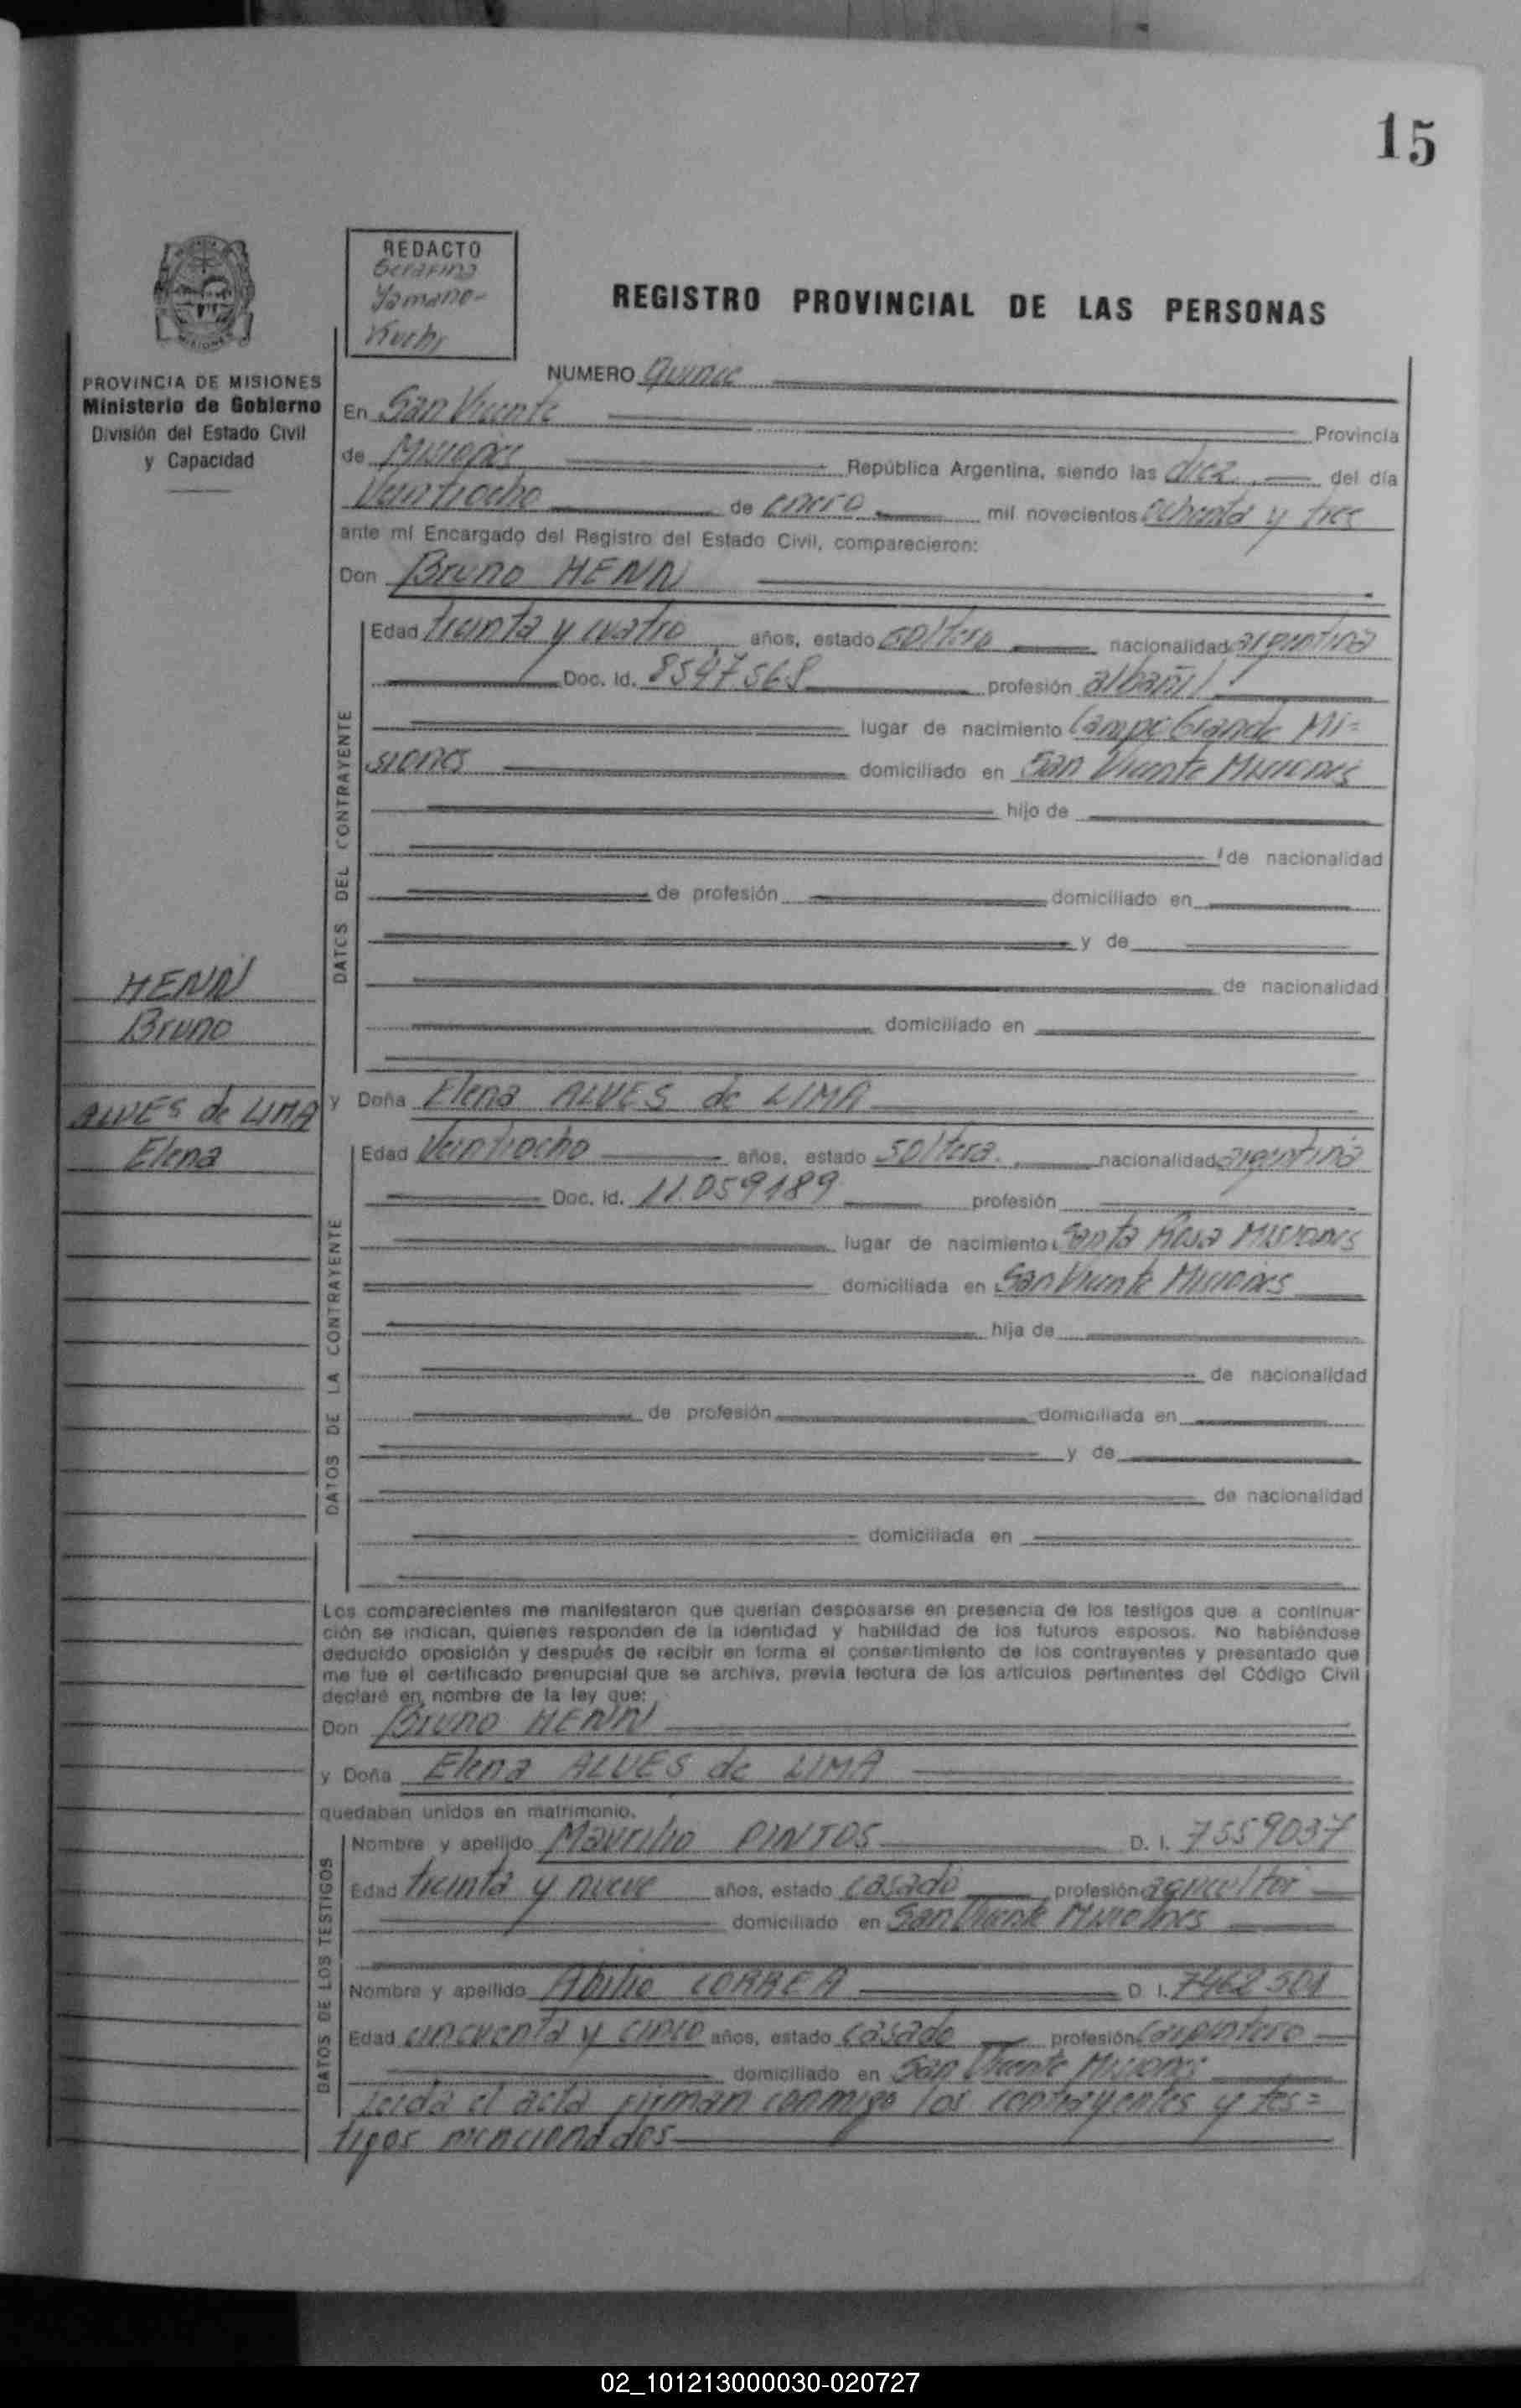 15
REDACTO
Serafina
Yamano-
REGISTRO PROVINCIAL DE LAS PERSONAS
PROVINCIA DE MISIONES
Ministerio de Gobierno
División del Estado Civil
y Capacidad
NUMERO Quince
En San Vicente Provincia
de Misiones República Argentina, siendo las diez del día
Veintiocho de enero mil novecientos ochenta y tres
ante mí Encargado del Registro del Estado Civil, comparecieron:
Don Bruno HENN
DATOS DEL CONTRAYENTE
Edad treinta y cuatro años, estado soltero nacionalidad argentina
Doc. Id. 8547568 profesión albañil
lugar de nacimiento Campo Grande Mi=
siones domiciliado en San Vicente Misiones
hijo de
de nacionalidad
de profesión domiciliado en
y de
de nacionalidad
domiciliado en
HENN
Bruno
ALVES de LIMA
Elena
y Doña Elena ALVES de LIMA
DATOS DE LA CONTRAYENTE
Edad Veintiocho años, estado soltera nacionalidad argentina
Doc. Id. 11.059189 profesión
lugar de nacimiento Santa Rosa Misiones
domiciliada en San Vicente Misiones
hija de
de nacionalidad
de profesión domiciliada en
y de
de nacionalidad
domiciliada en
Los comparecientes me manifestaron que querían desposarse en presencia de los testigos que a continua-
ción se indican, quienes responden de la identidad y habilidad de los futuros esposos. No habiéndose
deducido oposición y después de recibir en forma el consentimiento de los contrayentes y presentado que
me fue el certificado prenupcial que se archiva, previa lectura de los artículos pertinentes del Código Civil
declaré en nombre de la ley que:
Don Bruno HENN
y Doña Elena ALVES de LIMA
quedaban unidos en matrimonio.
DATOS DE LOS TESTIGOS
Nombre y apellido Maurilio PINTOS D. I. 7559037
Edad treinta y nueve años, estado casado profesión agricultor
domiciliado en San Vicente Misiones
Nombre y apellido Abilio CORREA D. I. 7462501
Edad cincuenta y cinco años, estado casado profesión Carpintero
domiciliado en San Vicente Misiones
Leída el acta firman conmigo los contrayentes y tes=
tigos mencionados
02_101213000030-020727